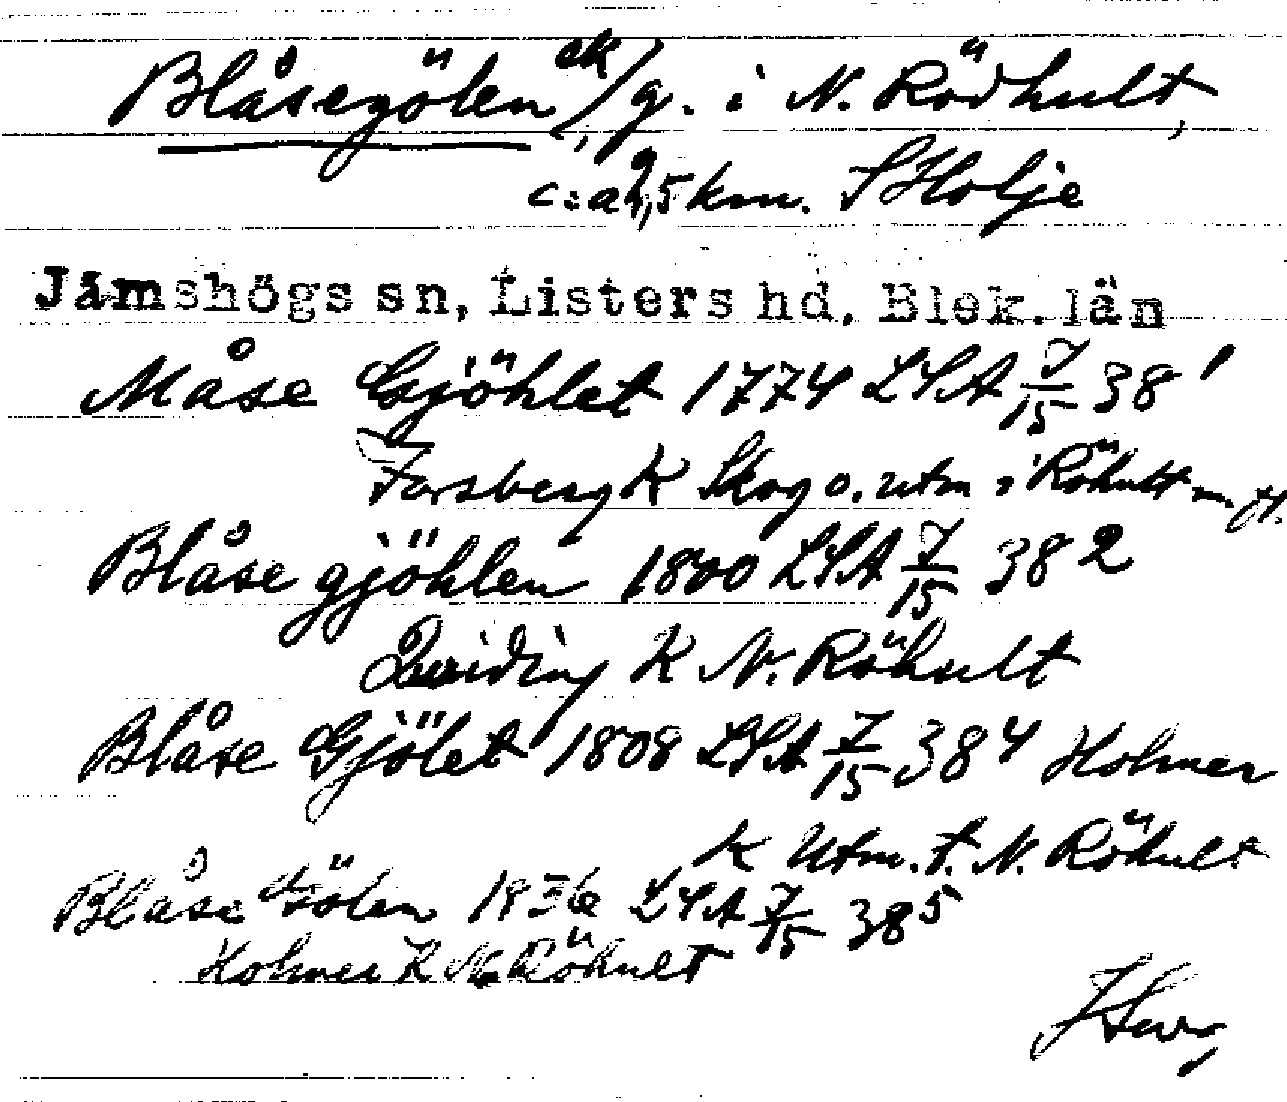 Blåsegölen ek/g. i N. Rödhult,
c:a 2,5 km. S Holje
Jämshögs sn, Listers hd, Blek. län
Måse Gjöhlet 1774 LSA 7/15 38 1
Forsberg K Skog o. utm i Röhult m. fl.
Blåse gjöhlen 1800 LSA 7/15 38 2
Quiding K N. Röhult
Blåse Gjölet 1808 LSA 7/15 38 4 Holmer
K Utm. t. N. Röhult
Blåse Gölen 1836 LSA 7/15 38 5
Holmer K N. Röhult